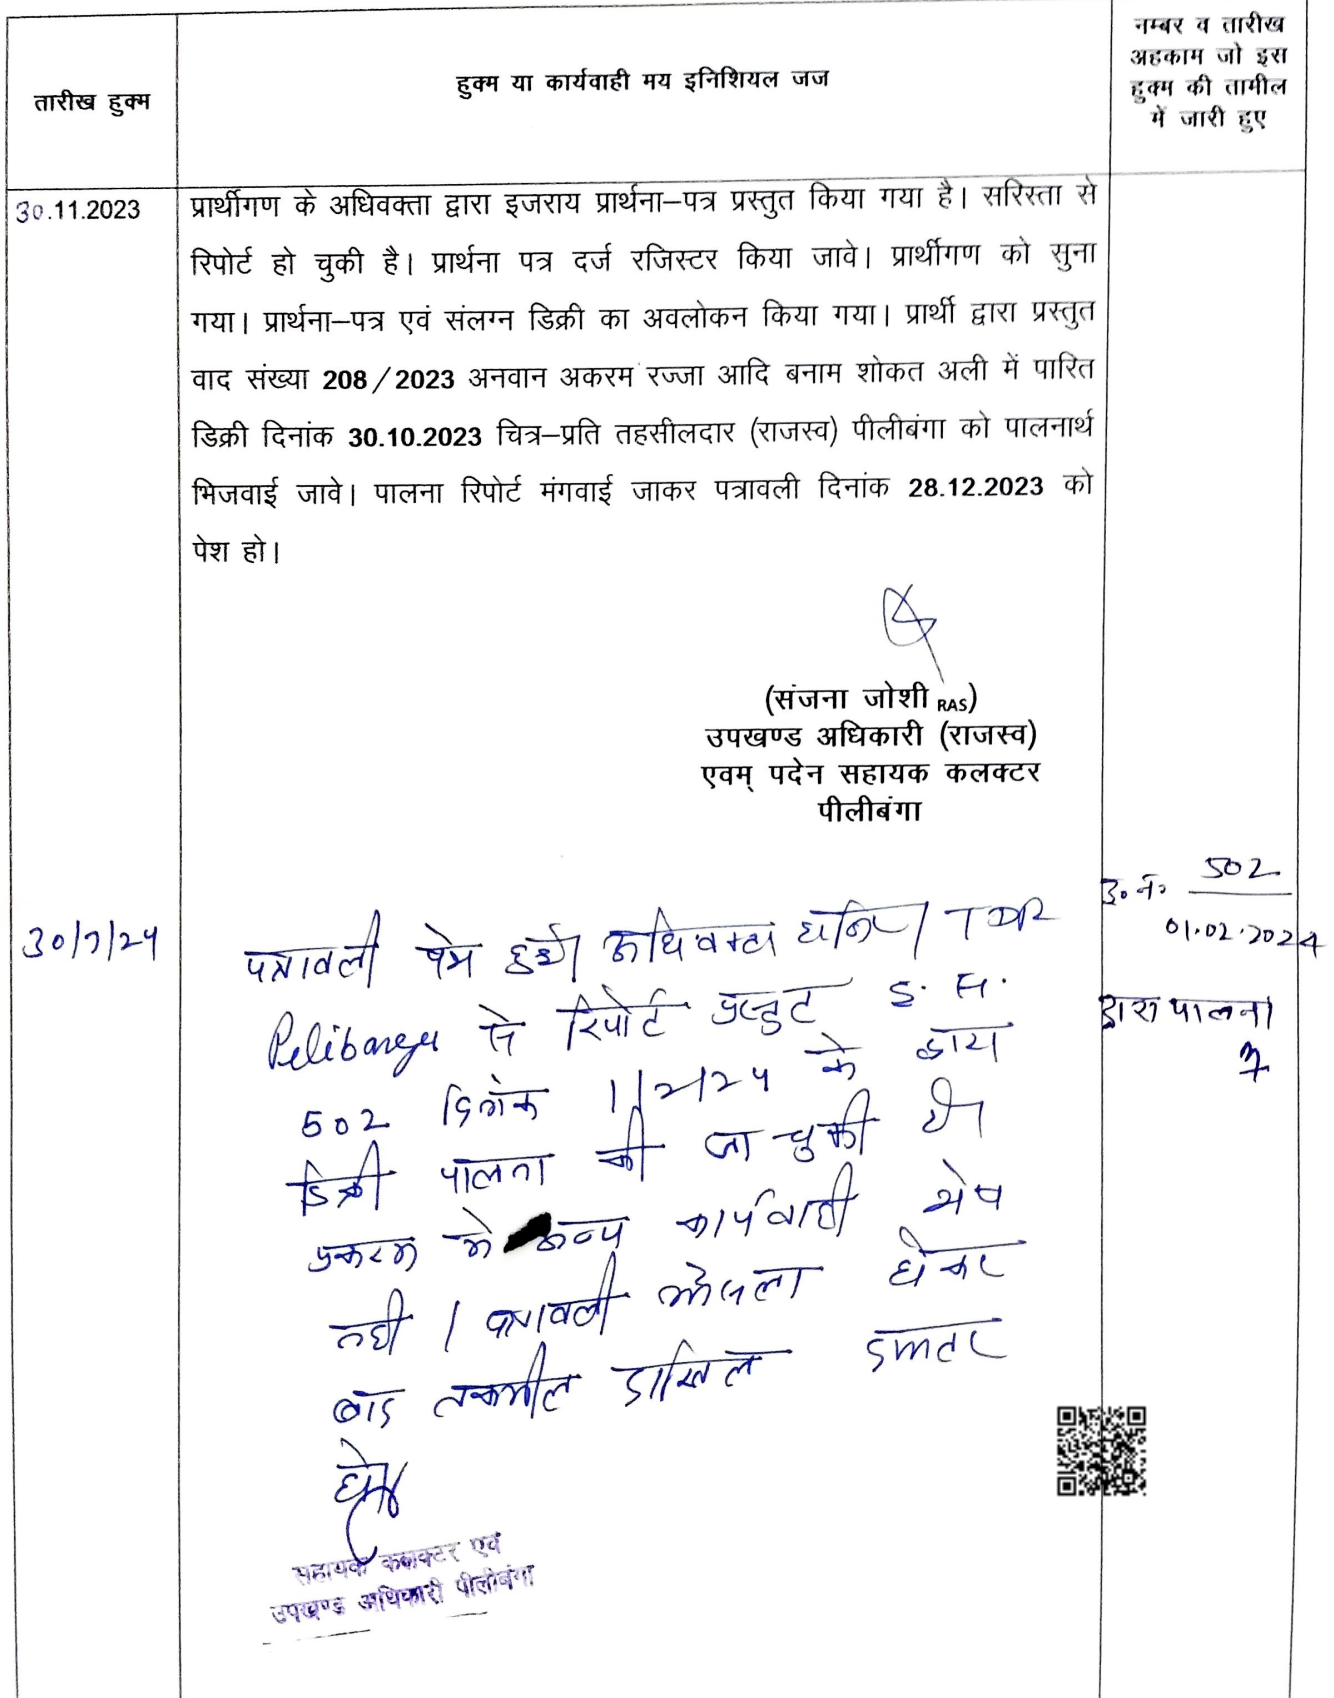 तारीख हुक्म
हुक्म या कार्यवाही मय इनिशियल जज
नम्बर व तारीख
अहकाम जो इस
हुक्म की तामील
में जारी हुए
30.11.2023
प्रार्थीगण के अधिवक्ता द्वारा इजराय प्रार्थना–पत्र प्रस्तुत किया गया है। सरिस्ता से
रिपोर्ट हो चुकी है। प्रार्थना पत्र दर्ज रजिस्टर किया जावे। प्रार्थीगण को सुना
गया। प्रार्थना–पत्र एवं संलग्न डिक्री का अवलोकन किया गया। प्रार्थी द्वारा प्रस्तुत
वाद संख्या 208/2023 अनवान अकरम रज्जा आदि बनाम शोकत अली में पारित
डिक्री दिनांक 30.10.2023 चित्र–प्रति तहसीलदार (राजस्व) पीलीबंगा को पालनार्थ
भिजवाई जावे। पालना रिपोर्ट मंगवाई जाकर पत्रावली दिनांक 28.12.2023 को
पेश हो।
(संजना जोशी RAS)
उपखण्ड अधिकारी (राजस्व)
एवम् पदेन सहायक कलक्टर
पीलीबंगा
502
01.02.2024
पालना
30/7/24
पत्रावली पेश हुई। अधिवक्ता TDR
से रिपोर्ट इ. स.
502 दिनांक 1/2/24 के
डिक्री पालना की जा चुकी है।
प्रकरण मे अन्य कार्यवाही शेष
नही। पत्रावली होकर
बाद तकमील दाखिल दफ्तर
हो।
सहायक कलक्टर एवं
उपखण्ड अधिकारी पीलीबंगा